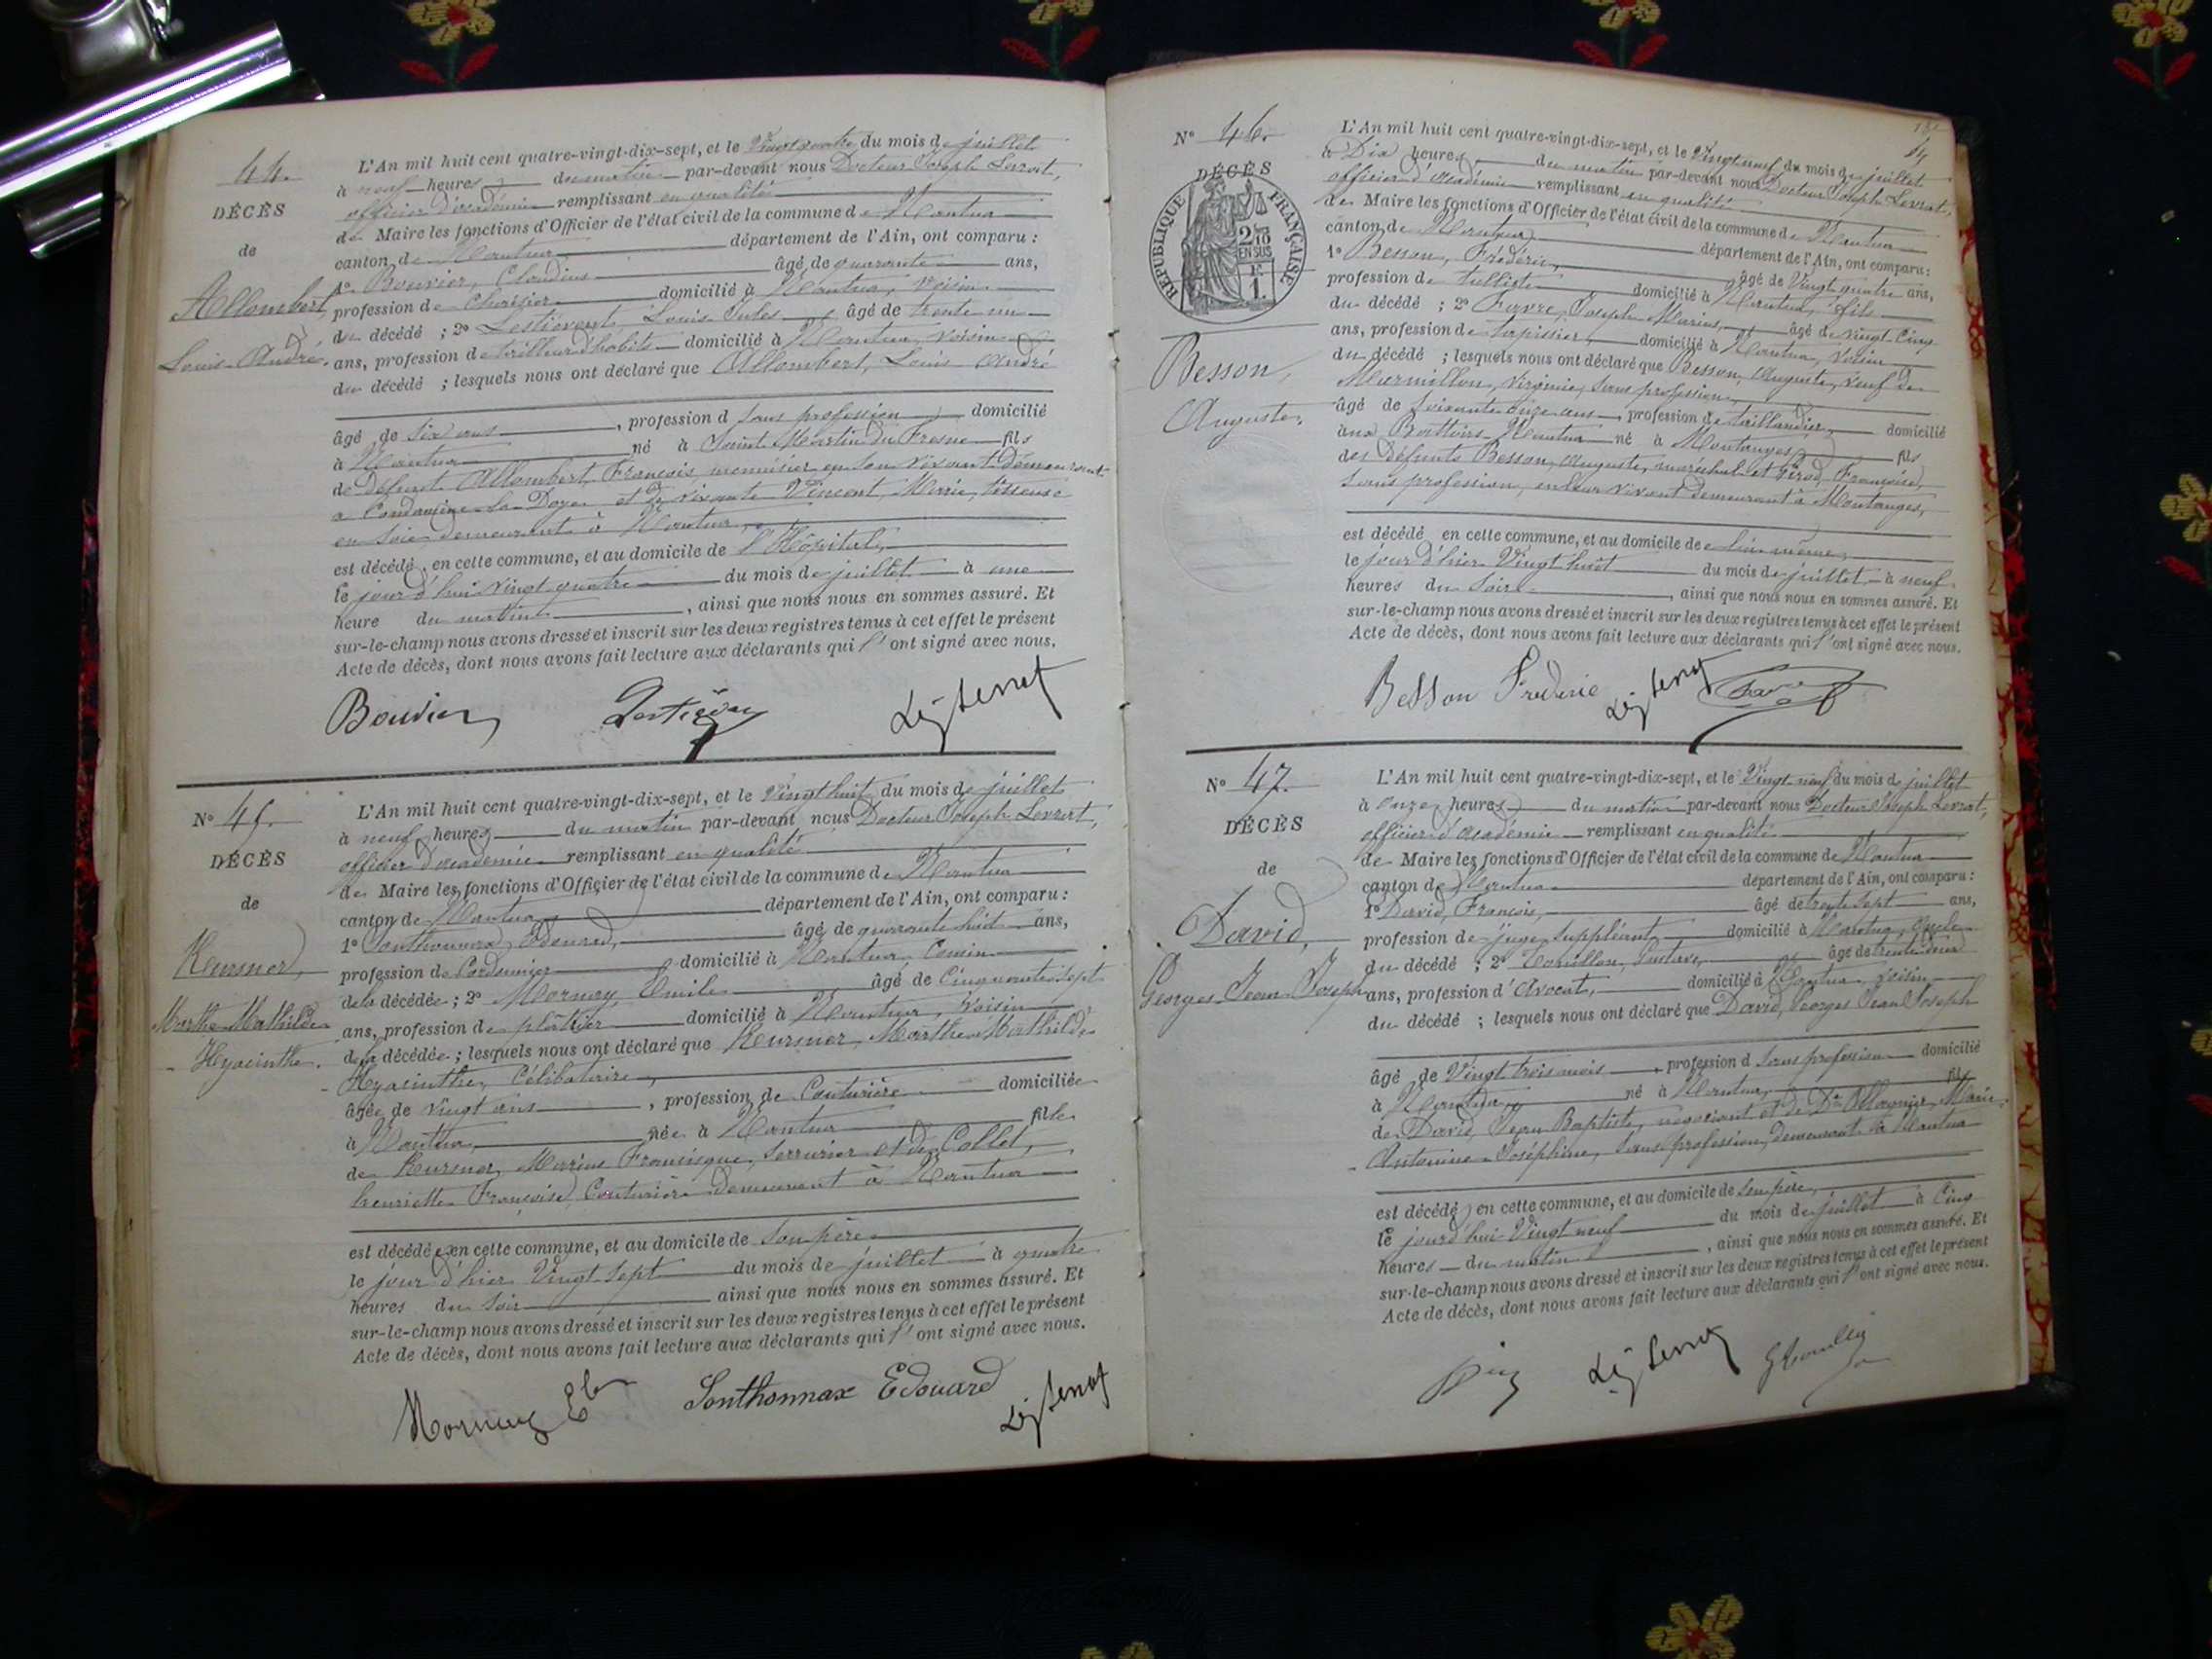 44.
DÉCÈS
de
Allombert
Louis André.
L'An mil huit cent quatre-vingt-dix-sept, et le Vingt quatre du mois de juillet
à neuf heures du matin par-devant nous Docteur Joseph Levrat,
officier d'académie remplissant en qualité
de Maire les fonctions d'Officier de l'état civil de la commune de Nantua
canton de Nantua département de l'Ain, ont comparu :
1º Bouvier, Claudius âgé de quarante ans,
profession de domicilié à Nantua, voisin
du décédé ; 2º Louis Jules âgé de trente un
ans, profession de tailleur d'habits domicilié à Nantua, voisin
du décédé ; lesquels nous ont déclaré que Allombert, Louis André
âgé de six ans , profession d sans profession domicilié
à Nantua né à Saint Martin du Fresne fils
de défunt Allombert, François, menuisier en son vivant demeurant
a Condamine la Doye et de vivante Vincent, Marie, tisseuse
en soie demeurant à Nantua,
est décédé en cette commune, et au domicile de l'Hôpital,
le jour d'hui vingt quatre du mois de juillet à une
heure du matin , ainsi que nous nous en sommes assuré. Et
sur-le-champ nous avons dressé et inscrit sur les deux registres tenus à cet effet le présent
Acte de décès, dont nous avons fait lecture aux déclarants qui l'ont signé avec nous.
Bouvier
Nº 45.
DÉCÈS
de
Kursner
Marthe Mathilde
Hyacinthe.
L'An mil huit cent quatre-vingt-dix-sept, et le Vingt huit du mois de juillet
à neuf heures du matin par-devant nous Docteur Joseph Levrat,
officier d'académie remplissant en qualité
de Maire les fonctions d'Officier de l'état civil de la commune de Nantua
canton de Nantua département de l'Ain, ont comparu :
1º Sonthonnax, Edouard, âgé de quarante huit ans,
profession de Cordonnier domicilié à Nantua, Cousin
de la décédée ; 2º Mornay Emile âgé de Cinquante sept
ans, profession de plâtrier domicilié à Nantua, voisin
de la décédée ; lesquels nous ont déclaré que Kursner, Marthe Mathilde
Hyacinthe, Célibataire,
âgée de vingt ans , profession de Couturière domiciliée
à Nantua, née à Nantua fille
de Kursner, Marius Francisque, Serrurier et de Collet,
henriette Françoise, Couturière demeurant à Nantua
est décédée en cette commune, et au domicile de son père
le jour d'hier Vingt sept du mois de juillet à quatre
heures du soir ainsi que nous nous en sommes assuré. Et
sur-le-champ nous avons dressé et inscrit sur les deux registres tenus à cet effet le présent
Acte de décès, dont nous avons fait lecture aux déclarants qui l'ont signé avec nous.
Mornay Sonthonnax Edouard
Nº 46.
DÉCÈS
RÉPUBLIQUE FRANÇAISE
2/10
EN SUS
1.
Besson,
Auguste,
L'An mil huit cent quatre-vingt-dix-sept, et le Vingt neuf du mois de juillet
à Dix heures du matin par-devant nous Docteur Joseph Levrat,
officier d'académie remplissant en qualité
de Maire les fonctions d'Officier de l'état civil de la commune de Nantua
canton de Nantua département de l'Ain, ont comparu :
1º Besson, Frédéric, âgé de Vingt quatre ans,
profession de tulliste domicilié à Nantua, fils
du décédé ; 2º Favre, Joseph Marius, âgé de vingt cinq
ans, profession de tapissier, domicilié à Nantua, voisin
du décédé ; lesquels nous ont déclaré que Besson, Auguste, veuf de
Murmillon, Virginie, sans profession,
âgé de soixante onze ans profession de taillandier domicilié
aux Battoirs Nantua né à Montanges fils
des défunts Besson, Auguste, maréchal et Girod, Françoise,
sans profession, en leur vivant demeurant à Montanges,
est décédé en cette commune, et au domicile de lui même,
le jour d'hier Vingt huit du mois de juillet à neuf
heures du soir , ainsi que nous nous en sommes assuré. Et
sur-le-champ nous avons dressé et inscrit sur les deux registres tenus à cet effet le présent
Acte de décès, dont nous avons fait lecture aux déclarants qui l'ont signé avec nous.
Besson Frederic
Nº 47.
DÉCÈS
de
David,
Georges Jean Joseph
L'An mil huit cent quatre-vingt-dix-sept, et le Vingt neuf du mois de juillet
à Onze heures du matin par-devant nous Docteur Joseph Levrat,
officier d'académie remplissant en qualité
de Maire les fonctions d'Officier de l'état civil de la commune de Nantua
canton de Nantua département de l'Ain, ont comparu :
1º David, François, âgé de trente sept ans,
profession de juge suppléant domicilié à Nantua, oncle
du décédé ; 2º Gustave, âgé de trente deux
ans, profession d'Avocat, domicilié à Nantua, voisin
du décédé ; lesquels nous ont déclaré que David, Georges Jean Joseph
âgé de Vingt trois mois , profession d sans profession domicilié
à Nantua, né à Nantua, fils
de David, Jean Baptiste, négociant et de Marie
Antonine Joséphine, sans profession, demeurant à Nantua
est décédé en cette commune, et au domicile de son père,
le jour d'hui Vingt neuf du mois de juillet à Cinq
heures du matin , ainsi que nous nous en sommes assuré. Et
sur-le-champ nous avons dressé et inscrit sur les deux registres tenus à cet effet le présent
Acte de décès, dont nous avons fait lecture aux déclarants qui l'ont signé avec nous.